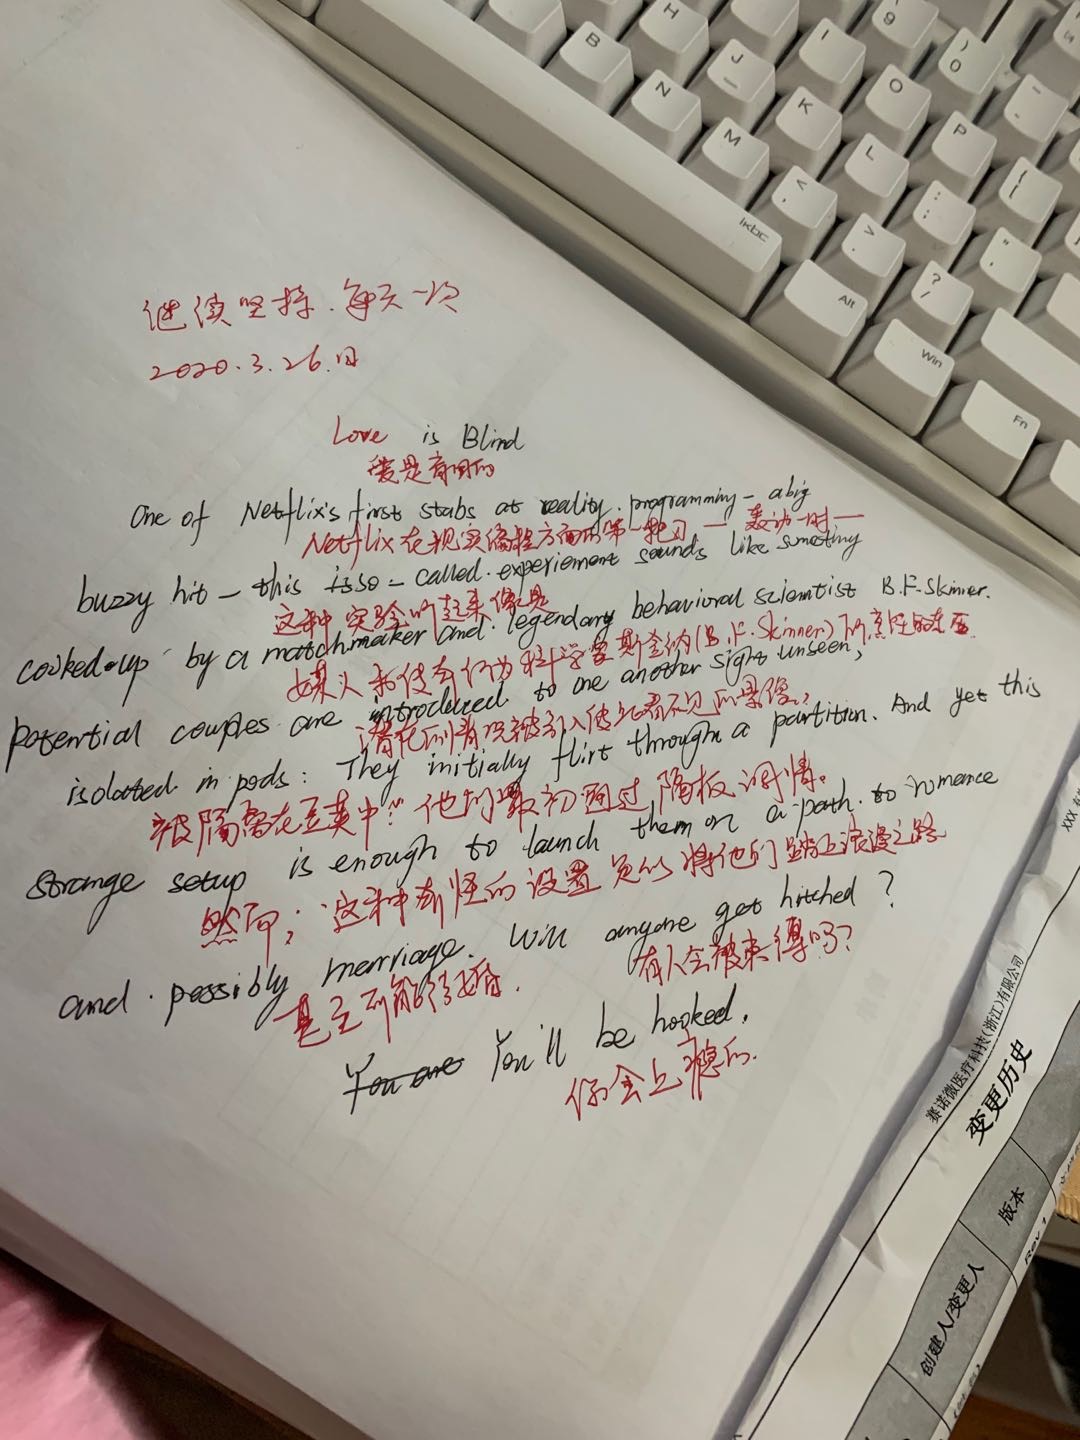 继续坚持.每天一次
2020.3.26.日
Love is Blind
爱是盲目的
One of Netflix's first stabs at reality. programming - a big
Netflix在现实编程方面的第一轮刀 — 轰动一时 —
buzzy hit - this is so-called. experiement sounds like something
这种实验听起来像是
cooked-up by a matchmaker and. legendary behavioral scientist B.F. Skinner.
媒人和传奇行为科学家斯金纳(B.F.Skinner)
potential couples are introduced to one another sight unseen,
潜在的情况被引入彼此看不见的景像,
isolated in pods: They initially flirt through a partition. And yet this
被隔离在豆荚中:他们最初通过隔板调情。
strange setup is enough to launch them on a path. to romance
然而;这种奇怪的设置足以将他们踏上浪漫之路
and. possibly merriage. Will anyone get hitched?
甚至可能结婚. 有人会被束缚吗?
You are You'll be hooked.
你会上瘾的.
H
B
N
J
M
I
K
O
L
P
9
)
0
_
-
{
[
:
;
"
'
<
,
>
.
?
/
ikbc
Alt
Win
Fn
赛诺微医疗科技(浙江)有限公司
变更历史
版本
Rev 1
创建人/变更人
XXX